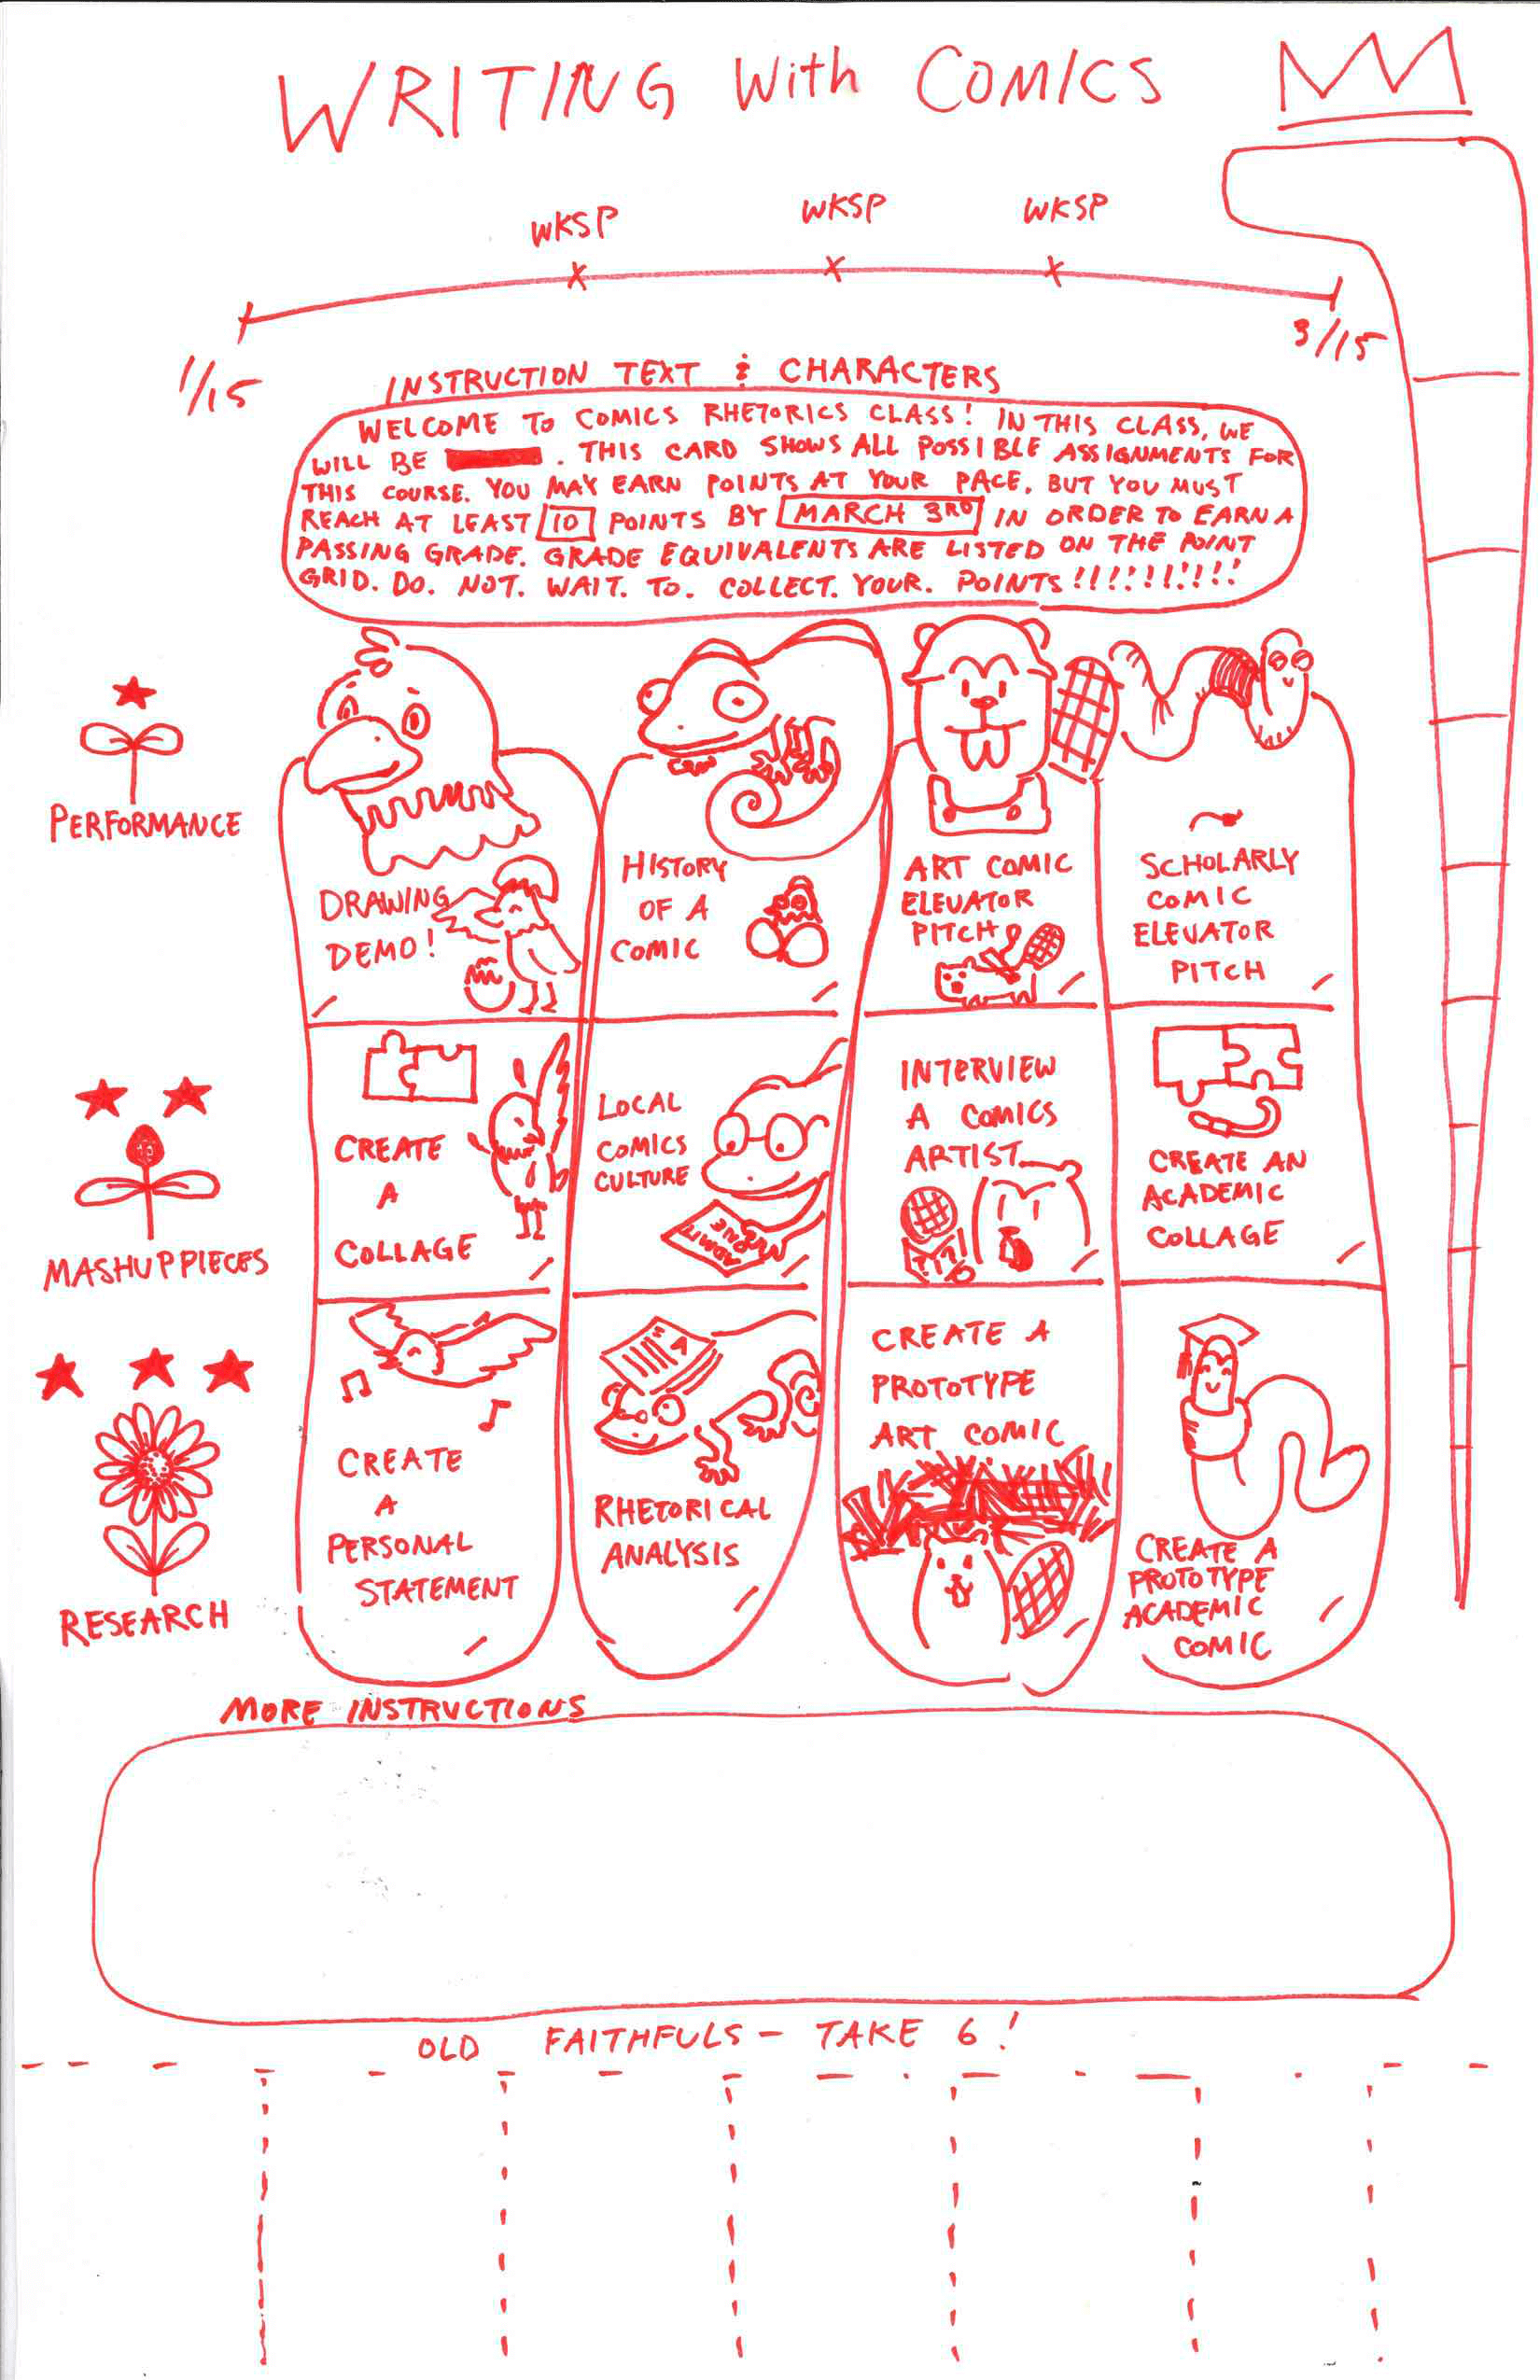 WRITING With COMICS
WKSP
WKSP
WKSP
1/15
3/15
INSTRUCTION TEXT & CHARACTERS
WELCOME TO COMICS RHETORICS CLASS! IN THIS CLASS, WE
WILL BE . THIS CARD SHOWS ALL POSSIBLE ASSIGNMENTS FOR
THIS COURSE. YOU MAY EARN POINTS AT YOUR PACE, BUT YOU MUST
REACH AT LEAST 10 POINTS BY MARCH 3RD IN ORDER TO EARN A
PASSING GRADE. GRADE EQUIVALENTS ARE LISTED ON THE POINT
GRID. DO. NOT. WAIT. TO. COLLECT. YOUR. POINTS!!!!!!!!!!
PERFORMANCE
DRAWING
DEMO!
HISTORY
OF A
COMIC
ART COMIC
ELEVATOR
PITCH
SCHOLARLY
COMIC
ELEVATOR
PITCH
MASHUP PIECES
CREATE
A
COLLAGE
LOCAL
COMICS
CULTURE
ADMIT
ONE
INTERVIEW
A COMICS
ARTIST
CREATE AN
ACADEMIC
COLLAGE
RESEARCH
CREATE
A
PERSONAL
STATEMENT
A
RHETORICAL
ANALYSIS
CREATE A
PROTOTYPE
ART COMIC
CREATE A
PROTOTYPE
ACADEMIC
COMIC
MORE INSTRUCTIONS
OLD FAITHFULS - TAKE 6!